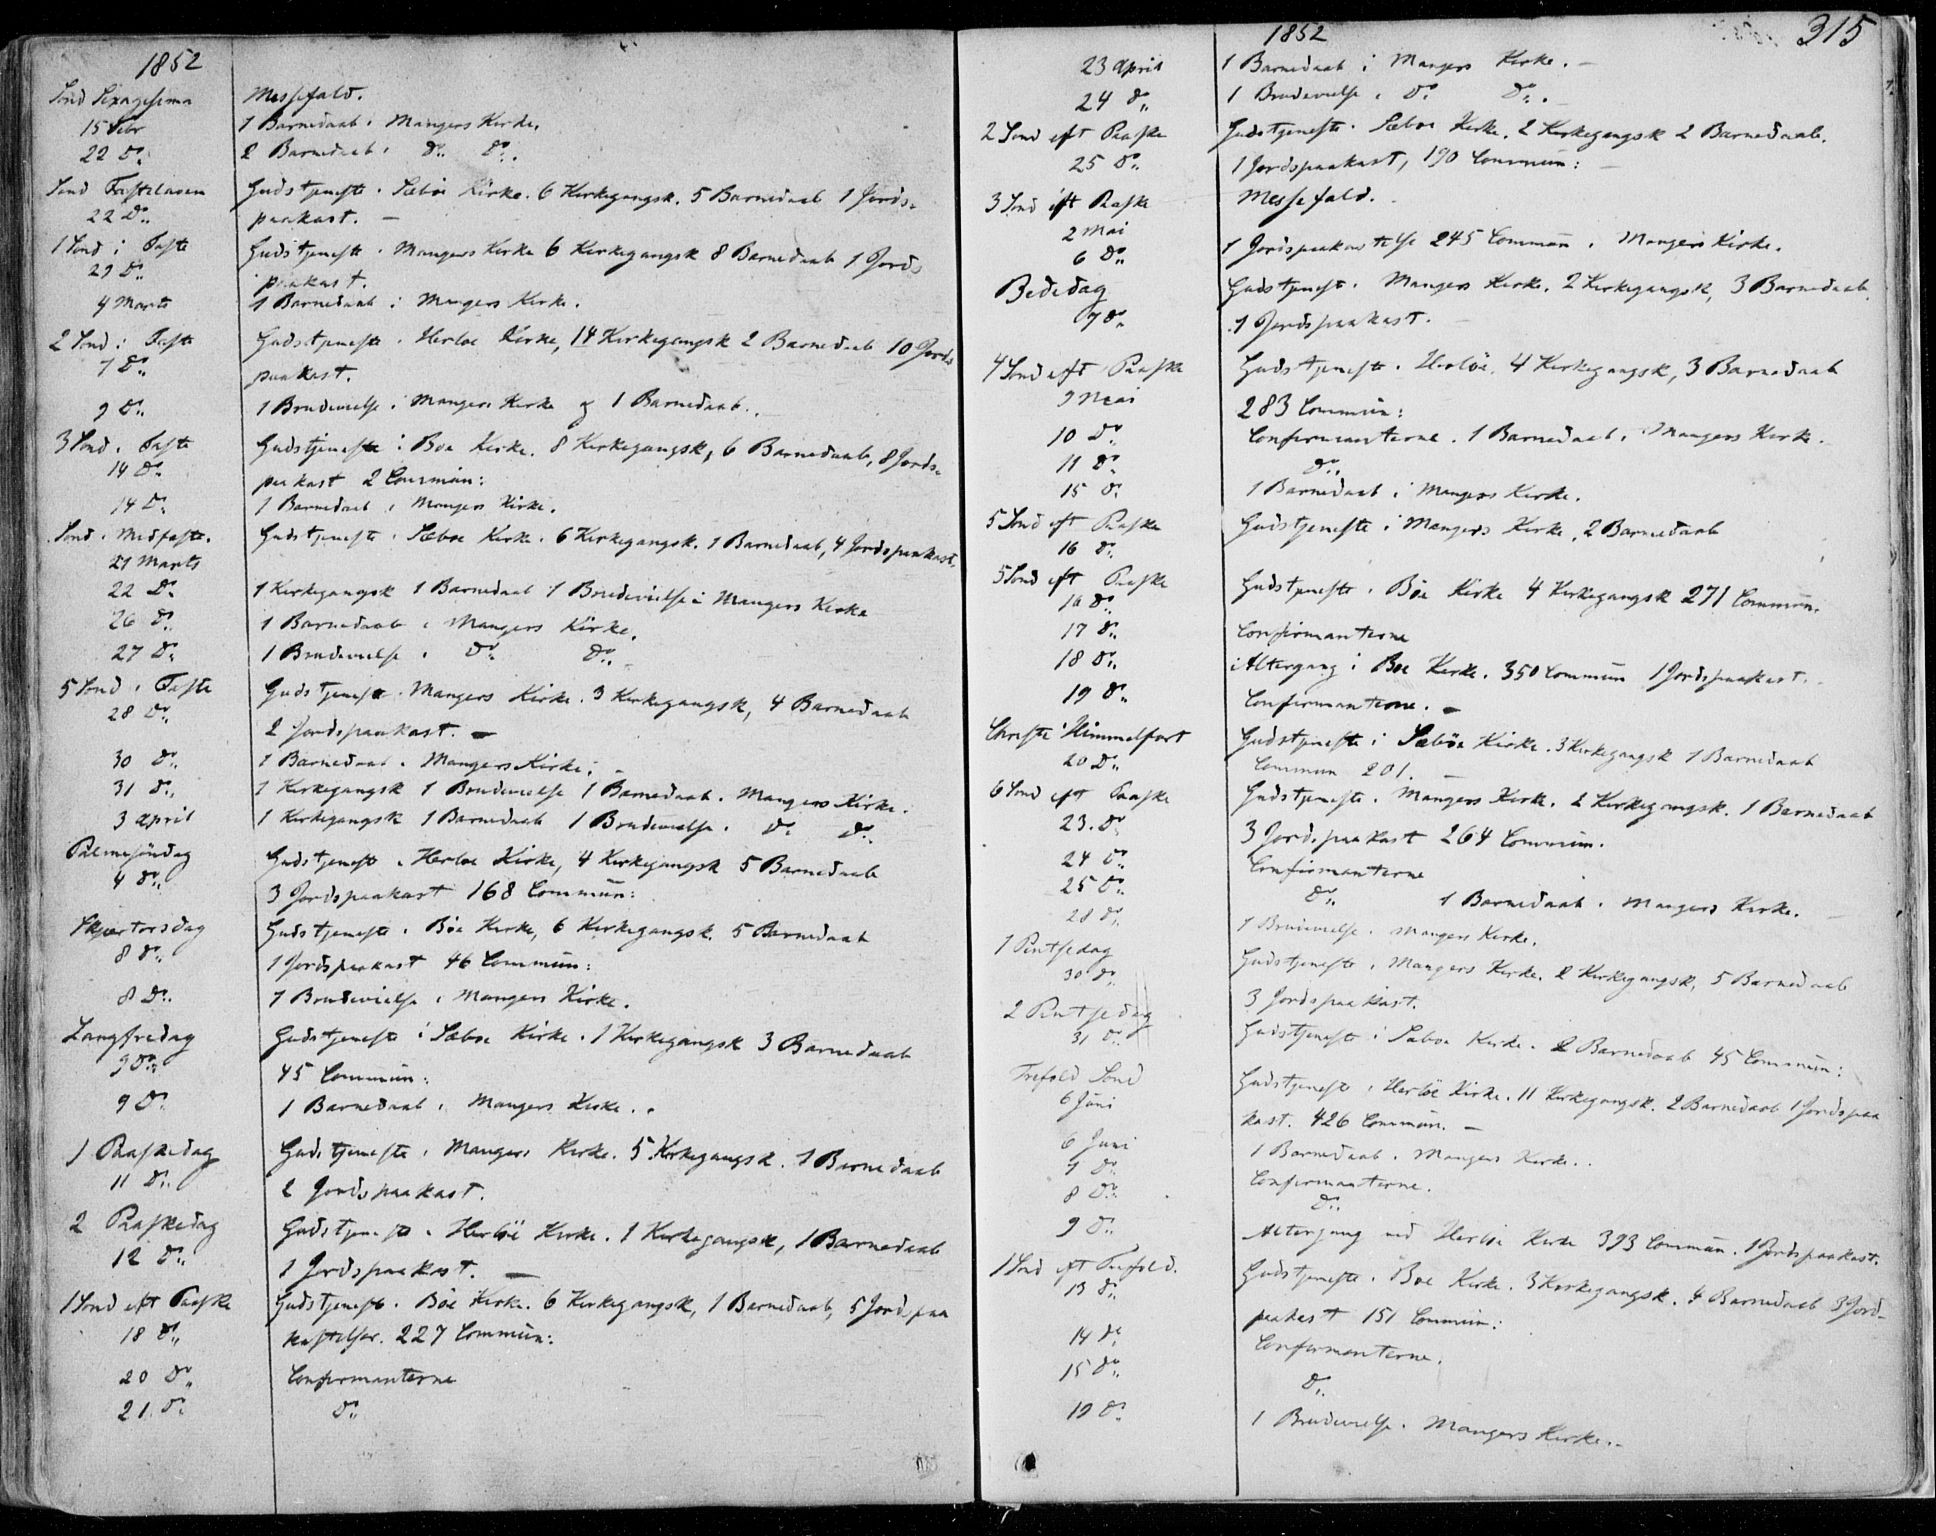 1852
Sønd Sexagesima Messefald.
15 Febr 1 Barnedaab i Mangers Kirke.
22 Do 2 Barnedaab i Do Do.
Sønd Fastelaven Gudstjeneste i Sæbøe Kirke. 6 Kirkegangsk. 5 Barnedaab 1 Jords-
22 Do paakast. —
1 Sønd i Faste Gudstjeneste i Mangers Kirke 6 Kirkegangsk 8 Barnedaab 1 Jords
29 Do paakast.
4 Marts 1 Barnedaab i Mangers Kirke.
2 Sønd i Faste Gudstjeneste i Herløe Kirke, 14 Kirkegangsk 2 Barnedaab 10 Jords
7 Do paakast.
9 Do 1 Brudevielse i Mangers Kirke og 1 Barnedaab.
3 Sønd i Faste Gudstjeneste i Bøe Kirke. 8 Kirkegangsk, 6 Barnedaab, 8 Jords-
14 Do paakast 2 Commun:
14 Do 1 Barnedaab i Mangers Kirke.
Sønd i Midfaste. Gudstjeneste i Sæbøe Kirke. 6 Kirkegangsk. 1 Barnedaab, 4 Jordspaakast.
21 Marts
22 Do 1 Kirkegangsk 1 Barnedaab 1 Brudevielse i Mangers Kirke
26 Do 1 Barnedaab i Mangers Kirke.
27 Do 1 Brudevielse i Do Do
5 Sønd i Faste Gudstjeneste i Mangers Kirke. 3 Kirkegangsk, 4 Barnedaab
28 Do 2 Jordspaakast. —
30 Do 1 Barnedaab i Mangers Kirke.
31 Do 1 Kirkegangsk 1 Brudevielse 1 Barnedaab i Mangers Kirke.
3 April 1 Kirkegangsk 1 Barnedaab 1 Brudevielse i Do Do
Palmesøndag Gudstjeneste i Herløe Kirke, 4 Kirkegangsk 5 Barnedaab
4 Do 3 Jordspaakast 168 Commun:
Skjærtorsdag Gudstjeneste i Bøe Kirke, 6 Kirkegangsk. 5 Barnedaab
8 Do 1 Jordspaakast 46 Commun:
8 Do 1 Brudevielse i Mangers Kirke.
Langfredag Gudstjeneste i Sæbøe Kirke. 1 Kirkegangsk 3 Barnedaab
9 Do 45 Commun:
9 Do 1 Barnedaab i Mangers Kirke.
1 Paaskedag Gudstjeneste i Mangers Kirke. 5 Kirkegangsk. 1 Barnedaab
11 Do 2 Jordspaakast.
2 Paaskedag Gudstjeneste i Herløe Kirke. 1 Kirkegangsk, 1 Barnedaab
12 Do 1 Jordspaakast. —
1 Sønd eft Paaske Gudstjeneste i Bøe Kirke. 6 Kirkegangsk, 1 Barnedaab, 5 Jordspaa
18 Do kastelser. 227 Commun:
20 Do Confirmanterne
21 Do Do
1852 315
23 April 1 Barnedaab i Mangers Kirke. —
24 Do 1 Brudevielse i Do Do.
2 Sønd eft Paaske Gudstjeneste i Sæbøe Kirke. 2 Kirkegangsk 2 Barnedaab.
25 Do 1 Jordspaakast, 190 Commun: —
3 Sønd eft Paaske Messefald.
2 Mai
6 Do 1 Jordspaakastelse 245 Commun i Mangers Kirke.
Bededag Gudstjeneste i Mangers Kirke. 2 Kirkegangsk, 3 Barnedaab
7 Do 1 Jordspaakast.
4 Sønd eft Paaske Gudstjeneste i Herløe. 4 Kirkegangsk, 3 Barnedaab
9 Mai 283 Commun:
10 Do Confirmanterne. 1 Barnedaab i Mangers Kirke.
11 Do Do
15 Do 1 Barnedaab i Mangers Kirke.
5 Sønd eft Paaske Gudstjeneste i Mangers Kirke, 2 Barnedaab
16 Do
5 Sønd eft Paaske Gudstjeneste i Bøe Kirke 4 Kirkegangsk 271 Commun.
16 Do
17 Do Confirmanterne
18 Do Altergang i Bøe Kirke. 350 Commun 1 Jordspaakast.
19 Do Confirmanterne. —
Christi Himmelfart Gudstjeneste i Sæbøe Kirke. 3 Kirkegangsk 1 Barnedaab
20 Do Commun 201. —
6 Sønd eft Paaske Gudstjeneste i Mangers Kirke. 2 Kirkegangsk. 1 Barnedaab
23. Do 3 Jordspaakast 264 Commun.
24 Do Confirmanterne
25 Do Do 1 Barnedaab i Mangers Kirke.
28 Do 1 Brudevielse i Mangers Kirke.
1 Pintsedag Gudstjeneste i Mangers Kirke. 2 Kirkegangsk, 5 Barnedaab
30 Do 3 Jordspaakast.
2 Pintsedag Gudstjeneste i Sæbøe Kirke. 2 Barnedaab 45 Commun:
31 Do
Trefold Sønd Gudstjeneste i Herløe Kirke. 11 Kirkegangsk. 2 Barnedaab 1 Jordspaa
6 Juni kast. 426 Commun. —
6 Juni 1 Barnedaab i Mangers Kirke.
7 Do Confirmanterne.
8 Do Do
9 Do Altergang ved Herløe Kirke 393 Commun. 1 Jordspaakast.
1 Sønd eft Trefold. Gudstjeneste i Bøe Kirke. 3 Kirkegangsk. 4 Barnedaab 3 Jord-
13 Do paakast 151 Commun:
14 Do Confirmanterne.
15 Do Do
19 Do 1 Brudevielse i Mangers Kirke.